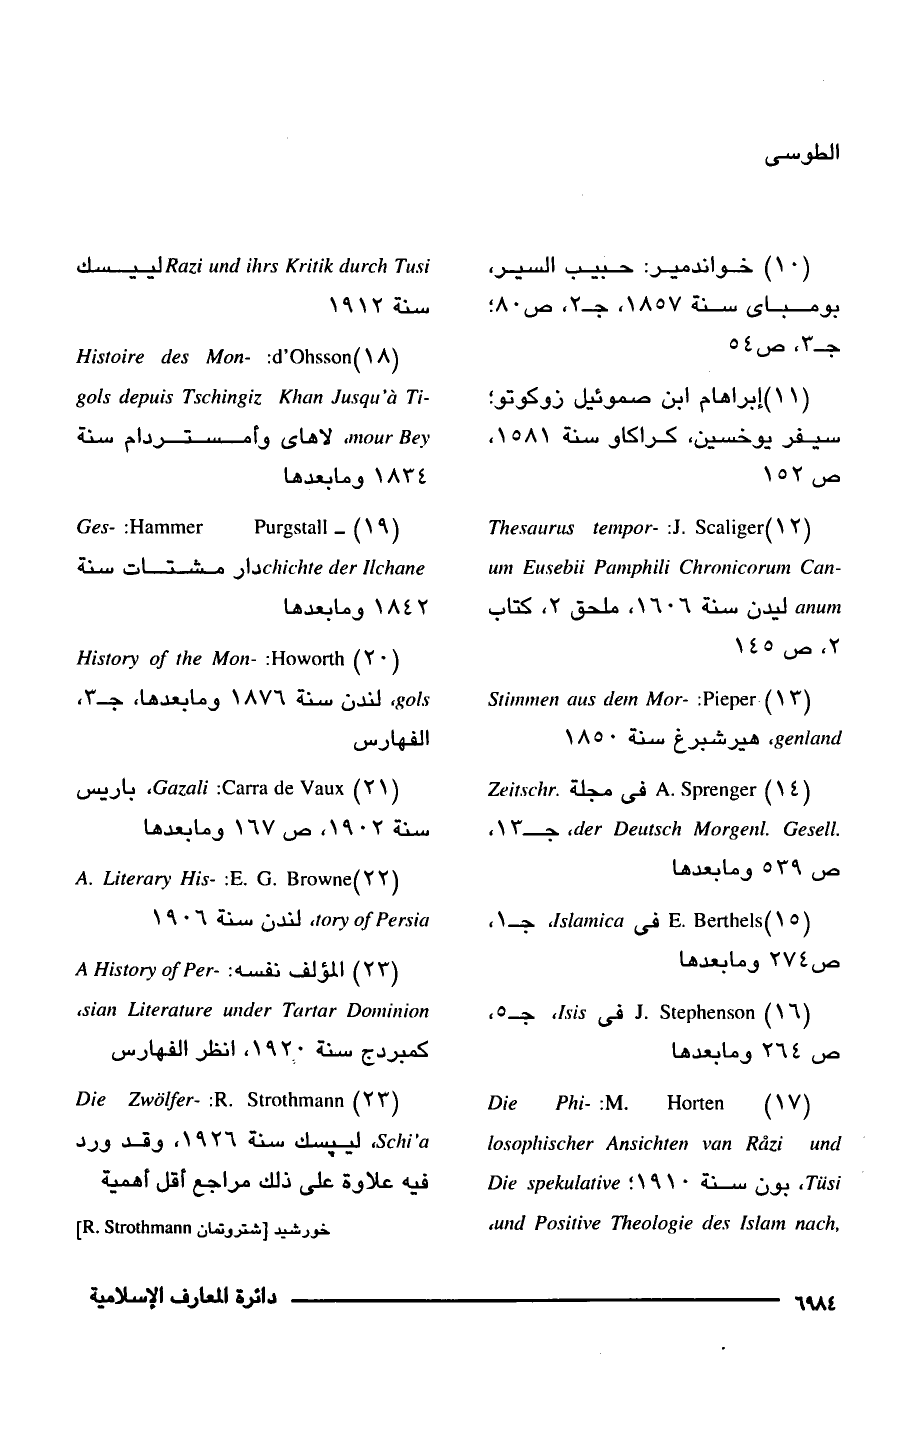 الطوسى
(١٠) خواندمير: حبيب السير،
بومباى سنة ١٨٥٧، جـ٢، ص٨٠؛
جـ٣، ص٥٤
(١١)إبراهام ابن صموئيل زوكوتو؛
سيفر يوخسين، كراكاو سنة ١٥٨١،
ص ١٥٢
(١٢)J. Scaliger: Thesaurus tempor-
um Eusebii Pamphili Chronicorum Can-
anum ليدن سنة ١٦٠٦، ملحق ٢، كتاب
٢، ص ١٤٥
(١٣) Pieper: Stimmen aus dem Mor-
genland، هيرشبرغ سنة ١٨٥٠
(١٤) A. Sprenger فى مجلة Zeitschr.
der Deutsch Morgenl. Gesell.، جـ١٣،
ص ٥٣٩ ومابعدها
(١٥)E. Berthels فى Islamica، جـ١،
ص٢٧٤ ومابعدها
(١٦) J. Stephenson فى Isis، جـ٥،
ص ٢٦٤ ومابعدها
(١٧) M. Horten: Die Phi-
losophischer Ansichten van Råzi und
Tüsi، بون سنة ١٩١٠؛ Die spekulative
und Positive Theologie des Islam nach,
Razi und ihrs Kritik durch Tusi ليبسك
سنة ١٩١٢
(١٨)d'Ohsson: Histoire des Mon-
gols depuis Tschingiz Khan Jusqu'à Ti-
mour Bey، لاهاى وأمستردام سنة
١٨٣٤ ومابعدها
(١٩) ـ Hammer Purgstall: Ges-
chichte der Ilchane دار مشتات سنة
١٨٤٢ ومابعدها
(٢٠) Howorth: History of the Mon-
gols، لندن سنة ١٨٧٦ ومابعدها، جـ٣،
الفهارس
(٢١) Carra de Vaux: Gazali، باريس
سنة ١٩٠٢، ص ١٦٧ ومابعدها
(٢٢)E. G. Browne: A. Literary His-
tory of Persia، لندن سنة ١٩٠٦
(٢٣) المؤلف نفسه: A History of Per-
sian Literature under Tartar Dominion،
كمبردج سنة ١٩٢٠، انظر الفهارس
(٢٣) R. Strothmann: Die Zwölfer-
Schi'a، ليبسك سنة ١٩٢٦، وقد ورد
فيه علاوة على ذلك مراجع أقل أهمية
خورشيد [شتروتمان R. Strothmann]
٦٩٨٤ دائرة المعارف الإسلامية